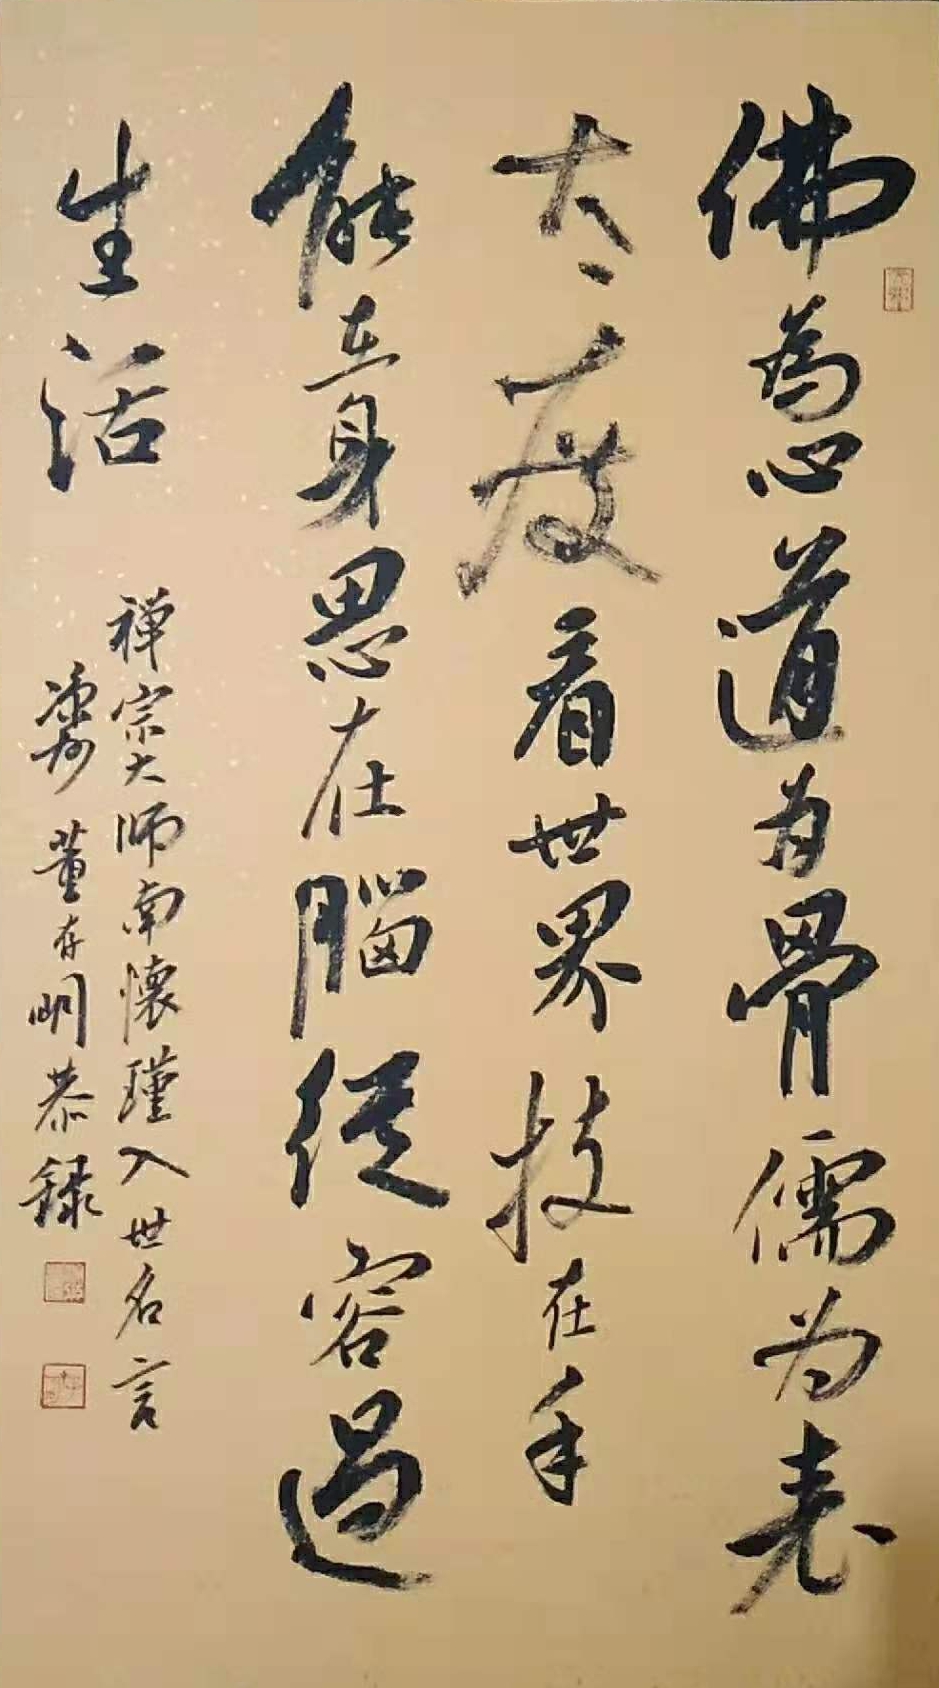 佛為心道为骨儒为表
大度看世界技在手
能在身思在腦從容過
生活
禅宗大师南懷瑾入世名言
董存明恭録